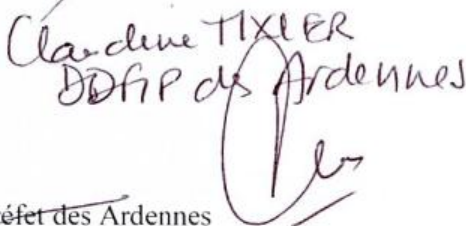 Claudine TIXIER
DDFiP des Ardennes
éfet des Ardennes